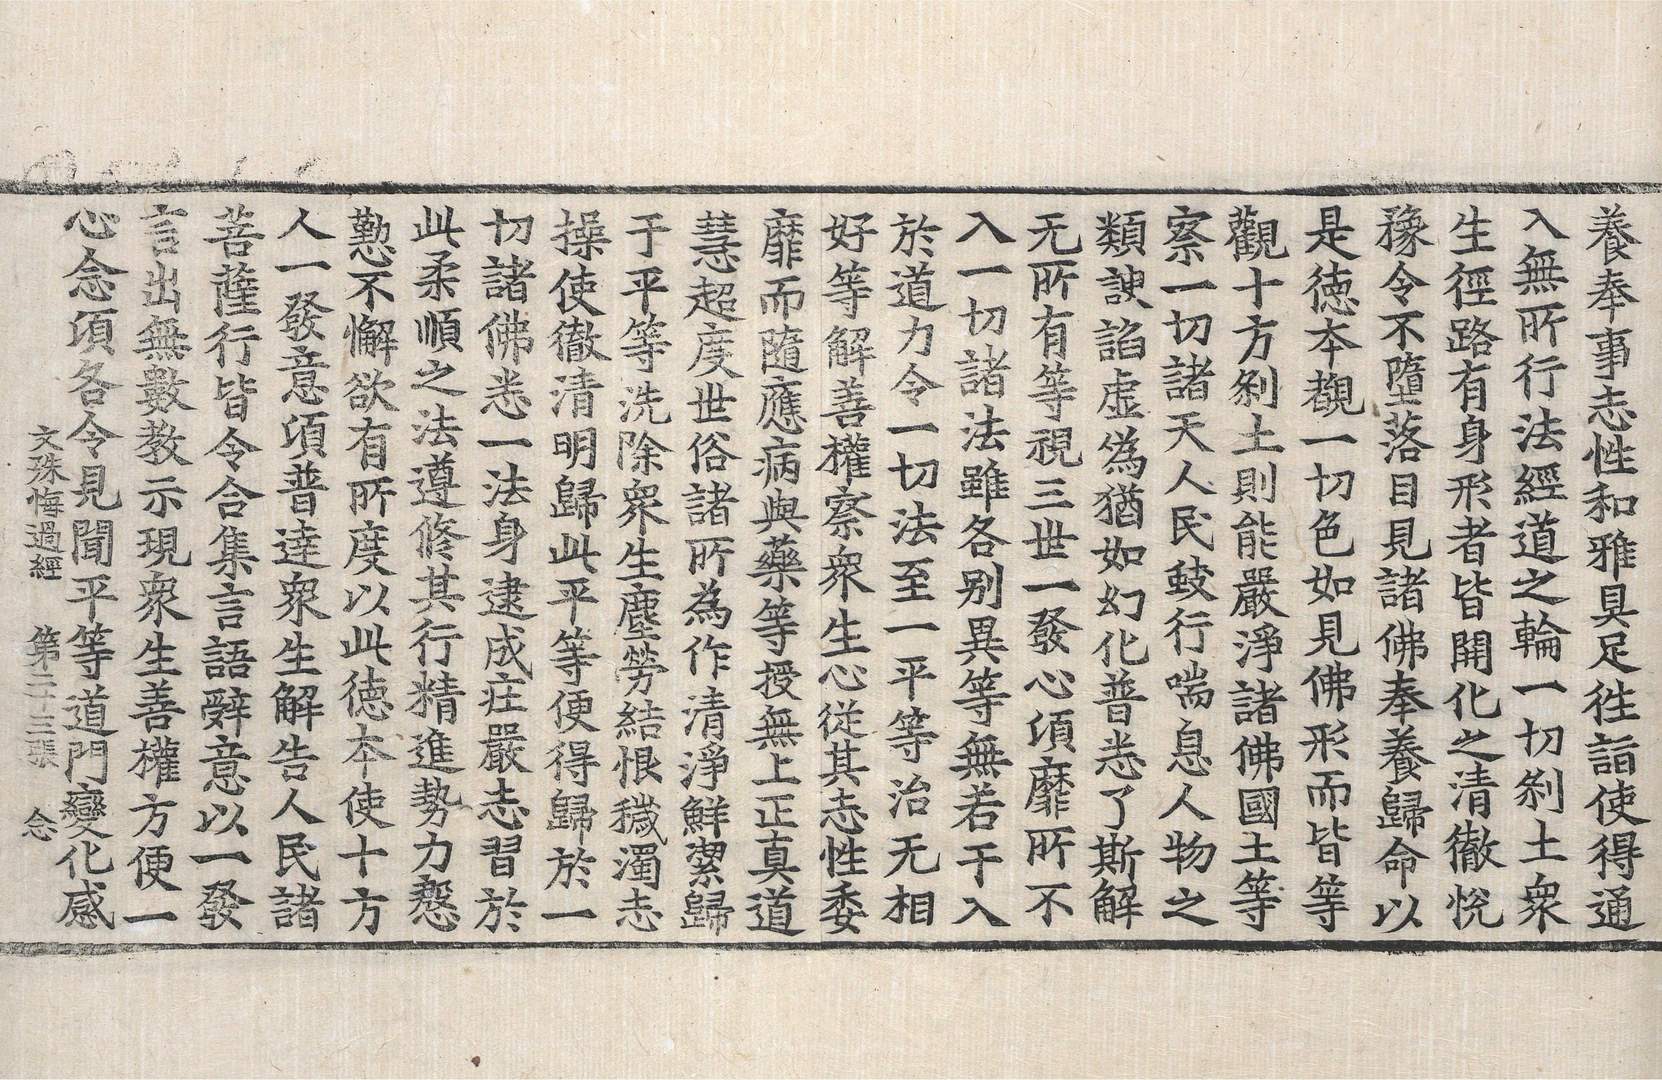 養奉事志性和雅具足徃詣使得通
入無所行法經道之輪一切刹土衆
生徑路有身形者皆開化之清徹恱
豫令不墮落目見諸佛奉養歸命以
是德本覩一切色如見佛形而皆等
觀十方刹土則能嚴淨諸佛國土等
察一切諸天人民蚑行喘息人物之
類諛諂虛爲猶如幻化普悉了斯解
无所有等視三世一發心頃靡所不
入一切諸法雖各別異等無若干入
於道力令一切法至一平等治无相
好等解善權察衆生心從其志性委
靡而隨應病與藥等授無上正真道
慧超度世俗諸所為作清淨鮮潔歸
于平等洗除衆生塵勞結恨穢濁志
操使徹清明歸此平等便得歸於一
切諸佛悉一法身逮成莊嚴志習於
此柔順之法遵修其行精進勢力慇
懃不懈欲有所度以此德本使十方
人一發意頃普達衆生解告人民諸
菩薩行皆令合集言語辭意以一發
言出無數教示現衆生善權方便一
心念頃各令見聞平等道門變化感
文殊悔過經　第二十三張　念